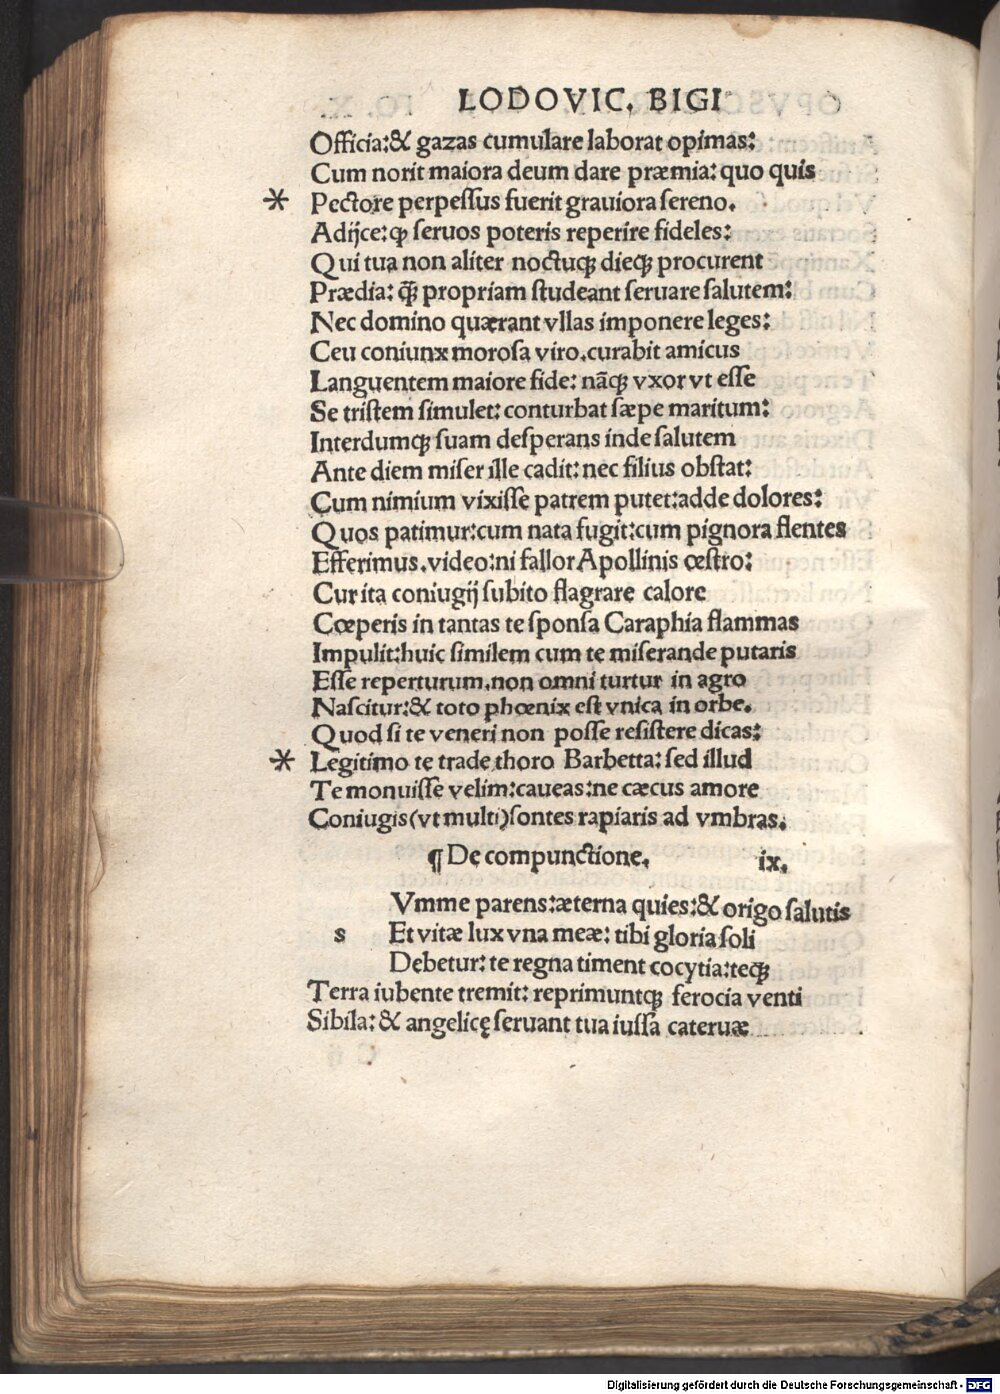 LODOVIC. BIGI
Officia:& gazas cumulare laborat opimas:
Cum norit maiora deum dare præmia: quo quis
* Pectore perpeſſus fuerit grauiora ſereno.
Adijce: ꝙ ſeruos poteris reperire fideles:
Qui tua non aliter noctuqꝫ dieqꝫ procurent
Prædia: ꝙ̃ propriam ſtudeant ſeruare ſalutem:
Nec domino quærant vllas imponere leges:
Ceu coniunx moroſa viro.curabit amicus
Languentem maiore fide: nãqꝫ vxor vt eſſe
Se triſtem ſimulet: conturbat ſæpe maritum:
Interdumqꝫ ſuam deſperans inde ſalutem
Ante diem miſer ille cadit: nec filius obſtat:
Cum nimium vixiſſe patrem putet:adde dolores:
Quos patimur:cum nata fugit:cum pignora flentes
Efferimus.video:ni fallor Apollinis œſtro:
Cur ita coniugij ſubito flagrare calore
Cœperis in tantas te ſponſa Caraphia flammas
Impulit:huic ſimilem cum te miſerande putaris
Eſſe reperturum.non omni turtur in agro
Naſcitur:& toto phœnix eſt vnica in orbe.
Quod ſi te veneri non poſſe reſiſtere dicas:
* Legitimo te trade thoro Barbetta: ſed illud
Te monuiſſe velim:caueas:ne cæcus amore
Coniugis(vt multi)ſontes rapiaris ad vmbras.
¶ De compunctione. ix.
Vmme parens:æterna quies:& origo ſalutis
s Et vitæ lux vna meæ: tibi gloria ſoli
Debetur: te regna timent cocytia:teqꝫ
Terra iubente tremit: reprimuntqꝫ ferocia venti
Sibila: & angelicę ſeruant tua iuſſa cateruæ
Digitalisierung gefördert durch die Deutsche Forschungsgemeinschaft - DFG